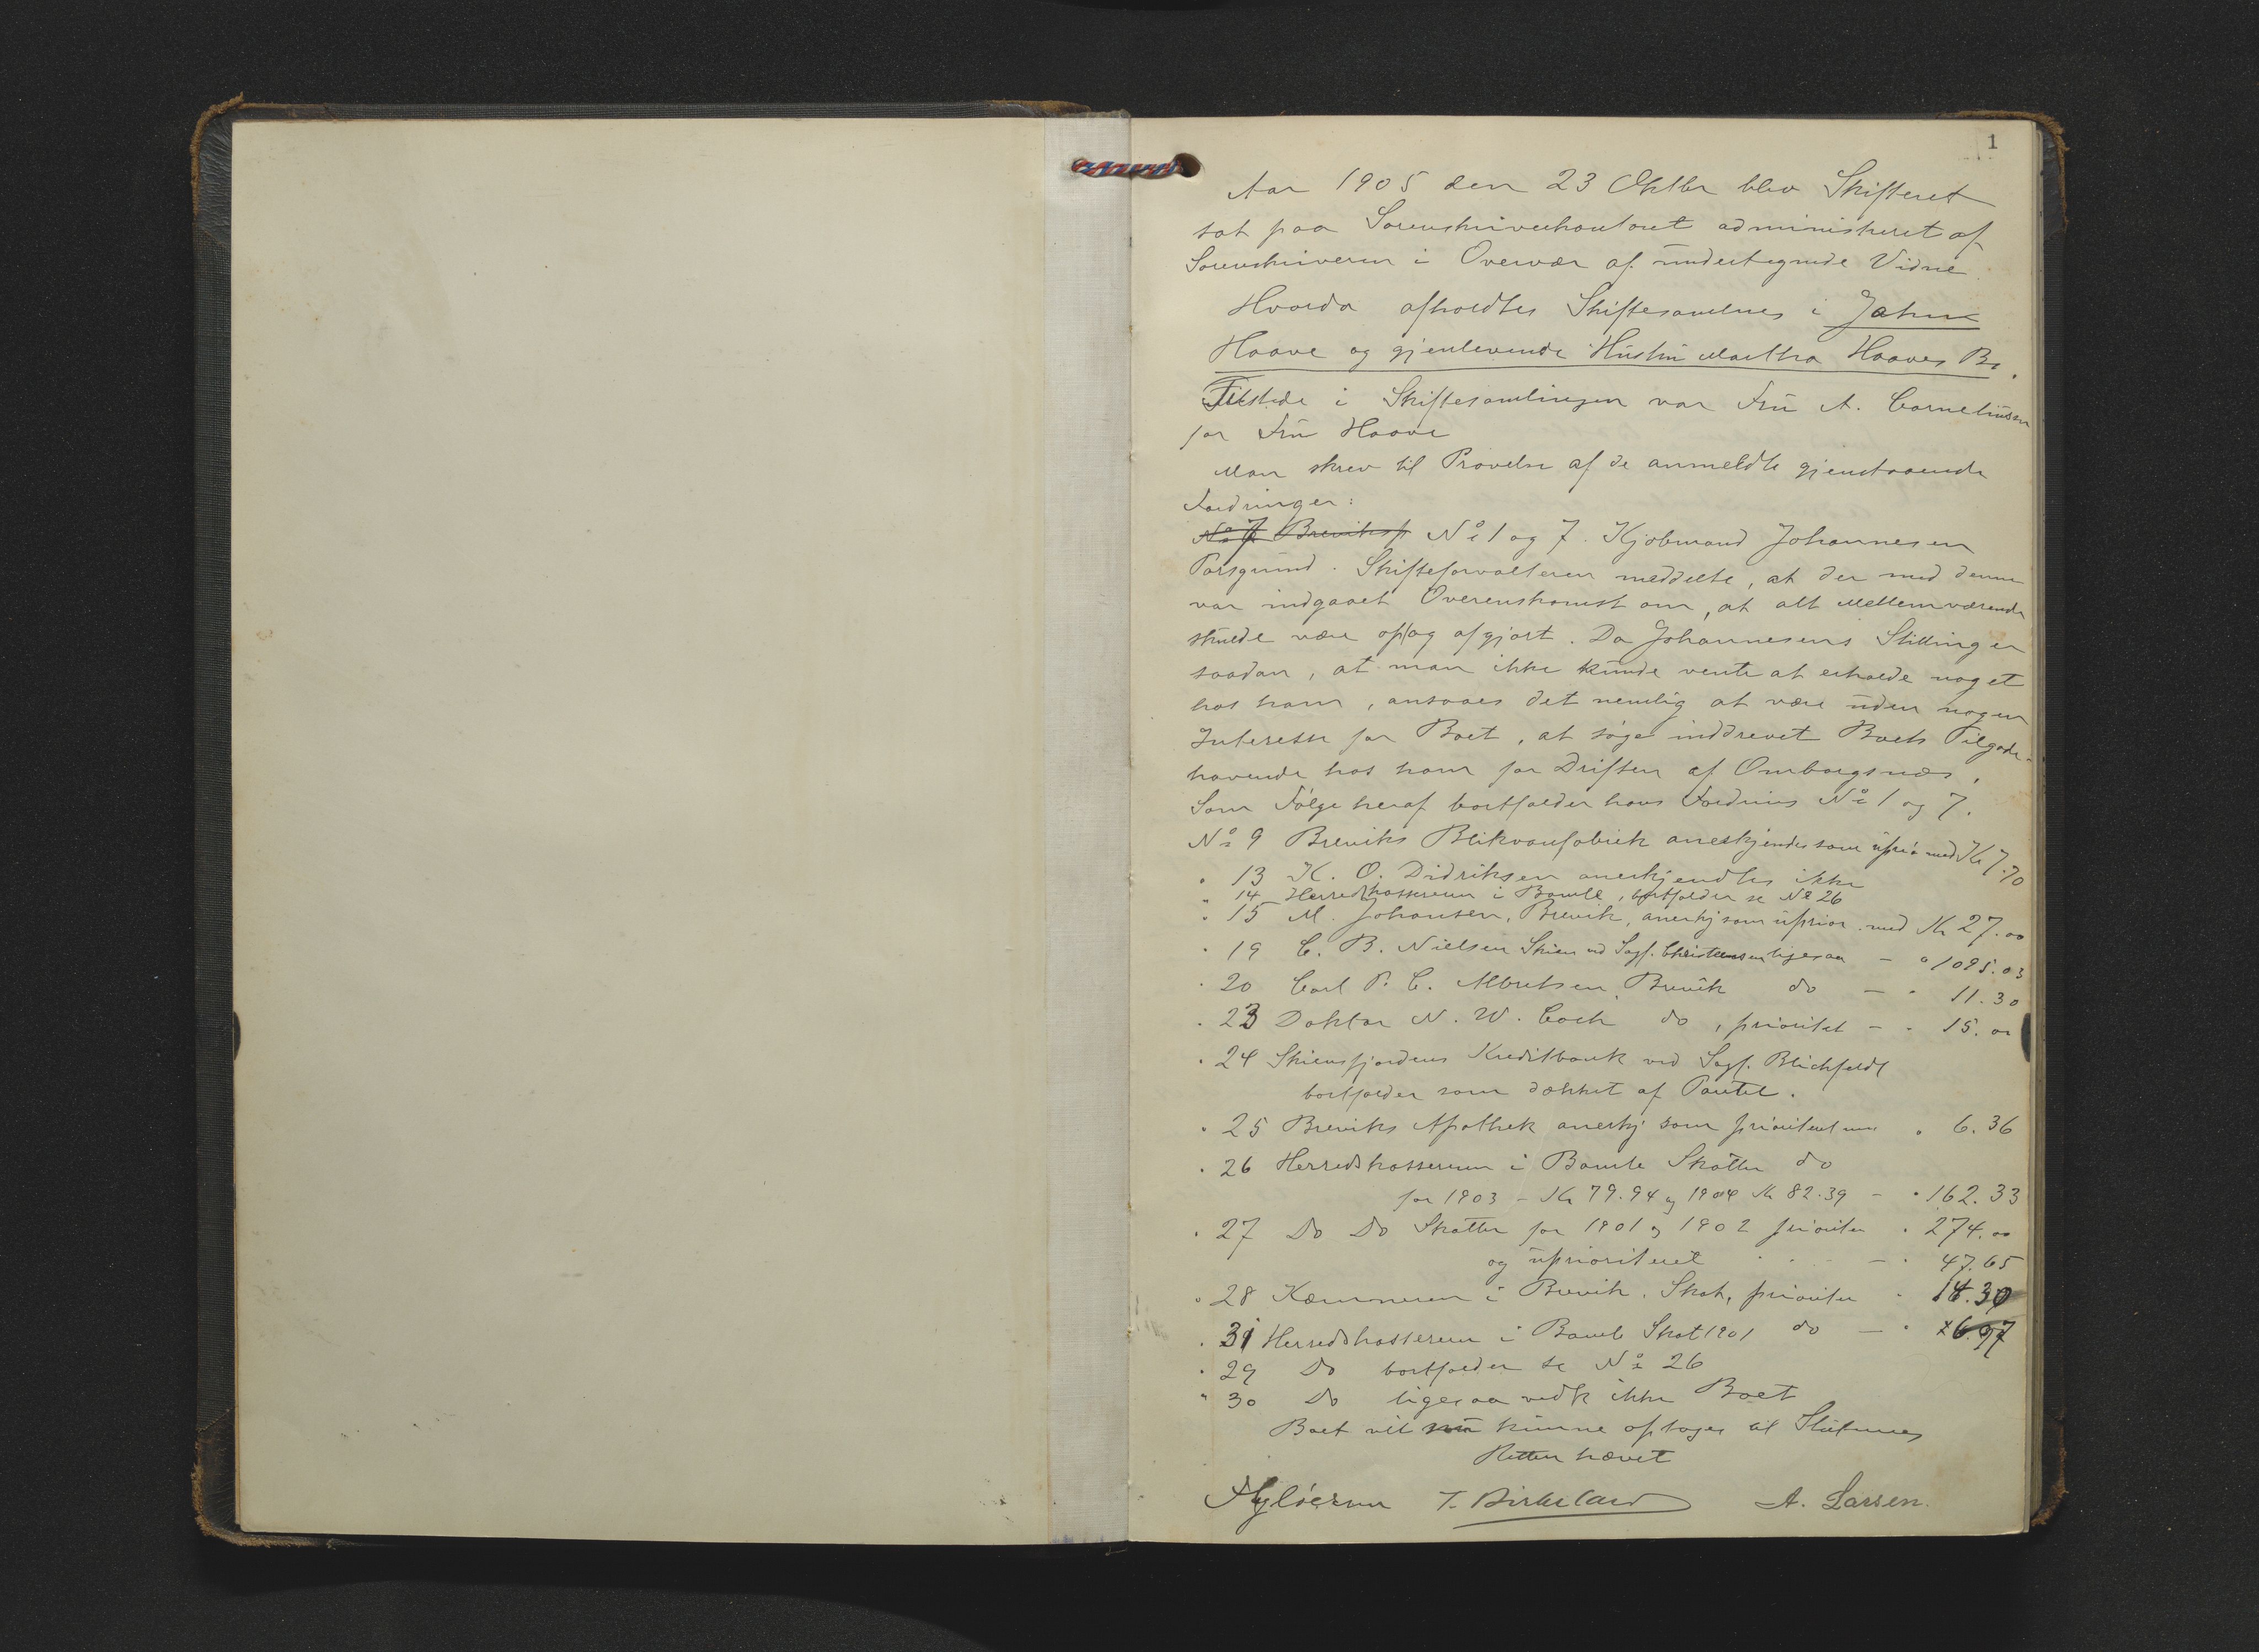 1
Aar 1905 den 23 Oktbr blev Skifteret
sat paa Sorenskriverkontoret administreret af
Sorenskriveren i Overvær af undertegnede Vidne
Hvorda afholdtes Skiftesamlings i Jahn
Haave og gjenlevende Hustru Martha Haaves Bo.
Tilstede i Skiftesamlingen var Fru A. Corneliussen
for Fru Haave
Man skrev til Prøvelse af de anmeldte gjenstaaende
Fordringer:
No 7 Breviksp No 1 og 7. Kjøbmand Johannesen
Porsgrund. Skifteforvalteren meddelte, at der med denne
var indgaaet Overenskomst om, at alt Mellemværende
skulde være op og afgjort. Da Johannesens Stilling er
saadan, at man ikke kunde vente at erholde noget
hos ham, ansaaes det nemlig at være uden nogen
Interesse for Boet, at søge inddrevet Boets Tilgode-
havende hos ham for Driften af Omborgsnes.
Som Følge heraf bortfalder hans Fordring No 1 og 7.
No 9 Breviks Blikvarefabrik anerkjendes som uprio med Kr 7.70
" 13 K. O. Didriksen anerkjendtes ikke
" 14 Herredskassereren i Bamle, bortfalder se No 26
" 15 M. Johansen, Brevik, anerkj som uprior. med Kr 27.00
" 19 C. B. Nielsen Skien ved Sagf. Christensen ligesaa - " 1095.03
" 20 Carl P. C. Albretsen, Brevik do - " 11.30
" 23 Doktor N. W. Coch do, prioritet - " 15.00
" 24 Skiensfjordens Kreditbank ved Sagf. Blichfeldt
bortfalder som dækket af Pantet.
" 25 Breviks Apothek anerkj som prioriteret med " 6.36
" 26 Herredskassereren i Bamle Skatter do
for 1903 - Kr 79.94 og 1904 Kr 82.39 - " 162.33
" 27 Do Do Skatter for 1901 og 1902 prioriter " 274.00
og uprioriteret - " 47.65
" 28 Kæmneren i Brevik. Skat, prioriter " 14.30
" 31 Herredskassereren i Bamle Skat 1901 do - "
" 29 Do bortfalder se No 26
" 30 Do ligesaa vedk ikke Boet
Boet vil nu kunne optages til Slutning
Retten hævet
T. Birkeland A. Larsen.